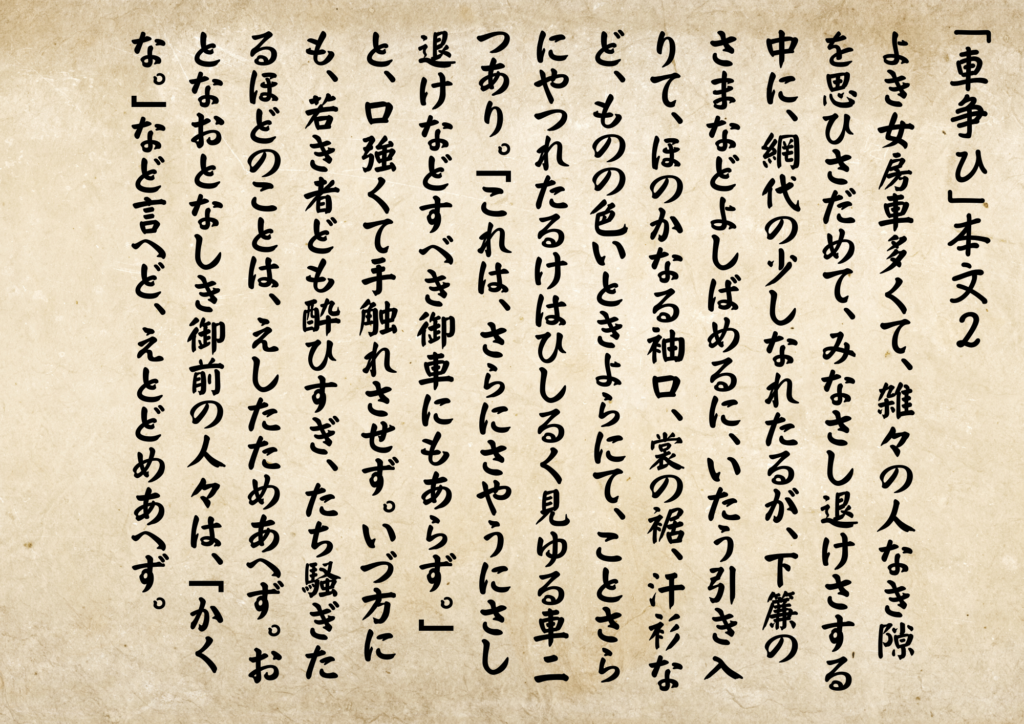 「車争ひ」本文2
よき女房車多くて、雑々の人なき隙
を思ひさだめて、みなさし退けさする
中に、網代の少しなれたるが、下簾の
さまなどよしばめるに、いたう引き入
りて、ほのかなる袖口、裳の裾、汗衫な
ど、ものの色いときよらにて、ことさら
にやつれたるけはひしるく見ゆる車二
つあり。「これは、さらにさやうにさし
退けなどすべき御車にもあらず。」
と、口強くて手触れさせず。いづ方に
も、若き者ども酔ひすぎ、たち騒ぎた
るほどのことは、えしたためあへず。お
となおとなしき御前の人々は、「かく
な。」など言へど、えとどめあへず。